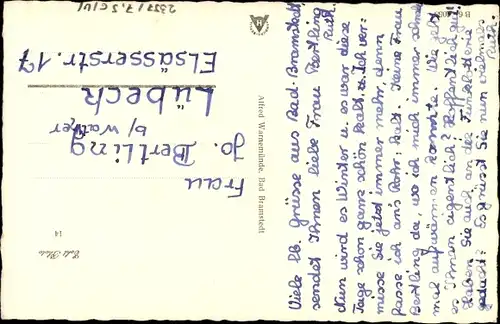 Viele lb. Grüsse aus Bad-Bramstedt
sendet Ihnen liebe Frau Bertling
Ruth.
Nun wird es Winter u. es war diese
Tage schon ganz schön kalt. u. ich ver-
misse Sie jetzt immer mehr, denn
fasse ich an's Rohr. Kalt. Keine Frau
Bertling da, wo ich mich immer
mal aufwärmen konnte. Wie geht
es Ihnen eigentlich? Hoffentlich gut.
Haben Sie auch an das
gedacht? Es grüsst Sie nun vielmals
Ruth.
Alfred Warnemünde, Bad Bramstedt
Frau
Jo. Bertling
b/ Walther
Lübeck
Elsässerstr. 17
14